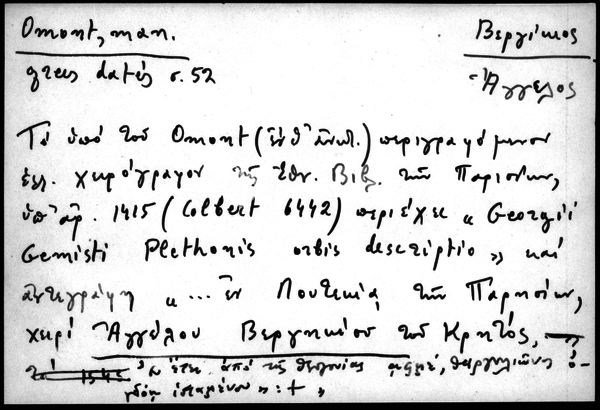 Omont, man.
grecs datés σ. 52
Βεργίκιος
Ἄγγελος
Τὸ ὑπὸ τοῦ Omont (ἔνθ' ἀνωτ.) περιγραφόμενον
ἑλ. χειρόγραφον τῆς Ἐθν. Βιβλ. τῶν Παρισίων,
ὑπ' ἀρ. 1415 (Colbert 6442) περιέχει « Georgii
Gemisti Plethonis orbis descriptio » καὶ
ἀντεγράφη « ... ἐν Λουτεκίᾳ τῶν Παρησίων,
χειρὶ Ἀγγέλου Βεργηκίου τοῦ Κρητός,
τῷ 1545 ἔτει ἀπὸ τῆς θεογονίας αφμε, θαργηλιῶνος ὀ-
γδόῃ ἱσταμένου » : + »